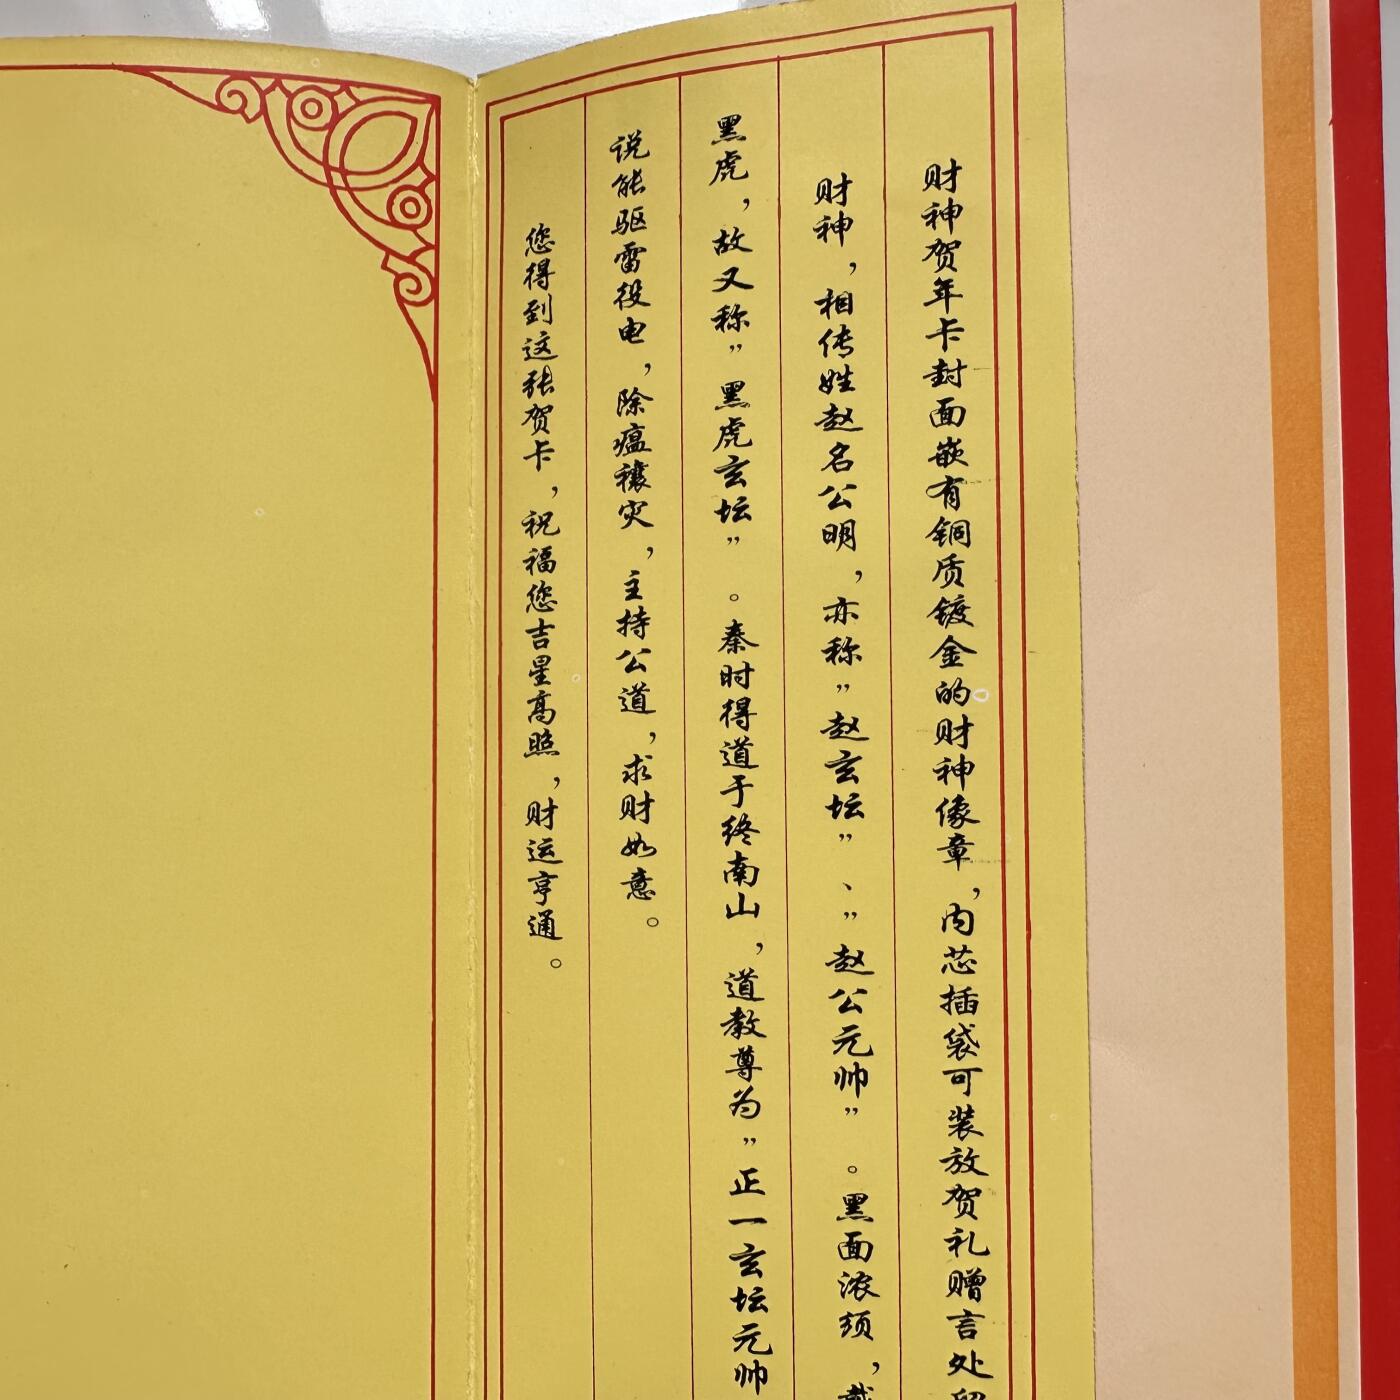 财神贺年卡封面嵌有铜质镀金的财神像章，内芯插袋可装放贺礼赠言处
财神，相传姓赵名公明，亦称”赵玄坛”、”赵公元帅”。黑面浓须，
黑虎，故又称”黑虎玄坛”。秦时得道于终南山，道教尊为”正一玄坛元帅
说能驱雷役电，除瘟禳灾，主持公道，求财如意。
您得到这张贺卡，祝福您吉星高照，财运亨通。